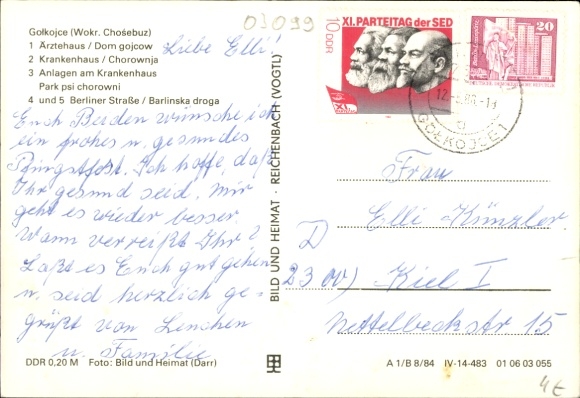 01099
Gołkojce (Wokr. Chośebuz)
1 Ärztehaus / Dom gojcow
2 Krankenhaus / Chorownja
3 Anlagen am Krankenhaus
Park psi chorowni
4 und 5 Berliner Straße / Barlinska droga
Liebe Elli!
Euch Beiden wünsche ich
ein frohes u. gesundes
Pfingstfest. Ich hoffe, daß
Ihr gesund seid. Mir
geht es wieder besser
Wann verreißt Ihr?
Laßt es Euch gut gehen
u. seid herzlich ge-
grüßt von Lenchen
u. Familie
DDR 0,20 M Foto: Bild und Heimat (Darr)
BILD UND HEIMAT · REICHENBACH (VOGTL)
XI. PARTEITAG der SED
10 DDR
XI.
20
GOŁKOJCE
Frau
Elli Künzler
D
2300) Kiel I
Nettelbeckstr 15
A 1/B 8/84 IV-14-483 01 06 03 055
4€